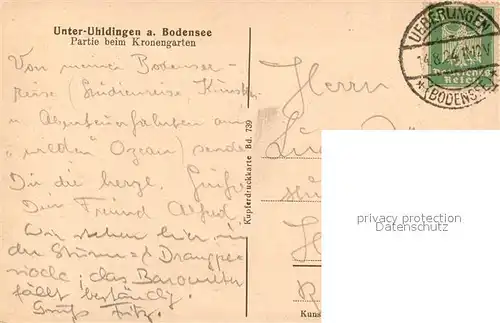 Unter-Uhldingen a. Bodensee
Partie beim Kronengarten
Von meiner Bodensee-
reise (Studienreise, Künstler
u Abenteuerfahrten am
"wilden" Ozean) sende
Dir die herzl. Grüße
Dein Freund Alfred.
Wir stehen hier in
der Sturm- & Drangpe-
riode; das Barometer
fällt beständig.
Gruß Fritz.
Kupferdruckkarte Bd. 739
Herrn
UEBERLINGEN
14.8.24
(BODENSEE)
Deutsches
Reich
privacy protection
Datenschutz
Kuns